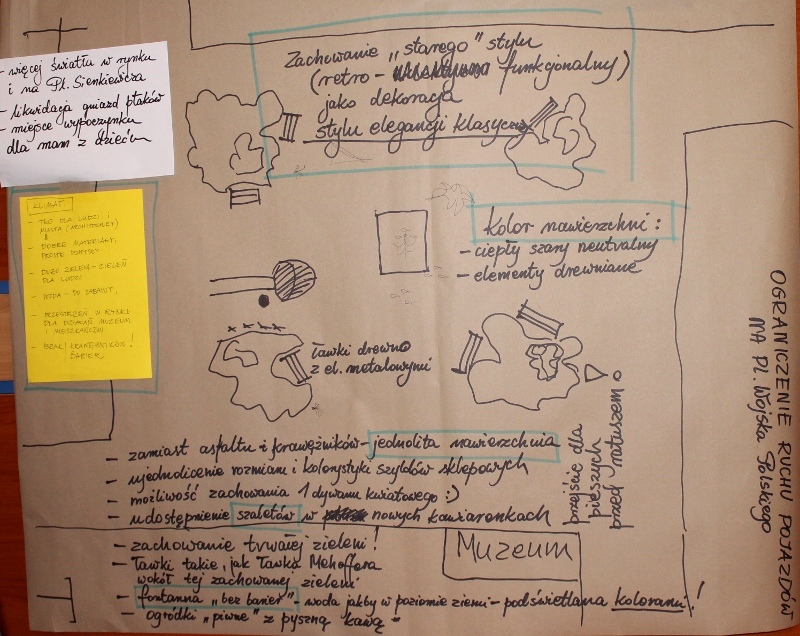 - więcej światła w rynku
i na Pl. Sienkiewicza
- likwidacja gniazd ptaków
- miejsce wypoczynku
dla mam z dziećm
KLIMAT
- TŁO DLA LUDZI I
MIASTA (ARCHITEKTURY)
- DOBRE MATERIAŁY,
PROSTE POMYSŁY
- DUŻO ZIELENI - ZIELEŃ
DLA LUDZI
- WODA - DO ZABAWY,
- PRZESTRZEŃ W RYNKU
DLA DZIAŁAŃ MUZEUM
I MIESZKAŃCÓW
- BRAK KRAWĘŻNIKÓW!
BARIER
Zachowanie „starego" stylu
(retro - funkcjonalny)
jako dekoracja
stylu elegancji klasycznej
Kolor nawierzchni:
- ciepły szary neutralny
- elementy drewniane
ławki drewno
z el. metalowymi
przejście dla
pieszych
przed ratuszem
OGRANICZENIE RUCHU POJAZDÓW
NA PL. WOJSKA POLSKIEGO
- zamiast asfaltu i krawężników - jednolita nawierzchnia
- ujednolicenie rozmiaru i kolorystyki szyldów sklepowych
- możliwość zachowania 1 dywanu kwiatowego :)
- udostępnienie szaletów w nowych kawiarenkach
- zachowanie trwałej zieleni!
- ławki takie, jak ławka Mehoffera
wokół tej zachowanej zieleni
- fontanna „bez barier" - woda jakby w poziomie ziemi - podświetlana kolorami!
- ogródki „piwne" z pyszną kawą -
Muzeum